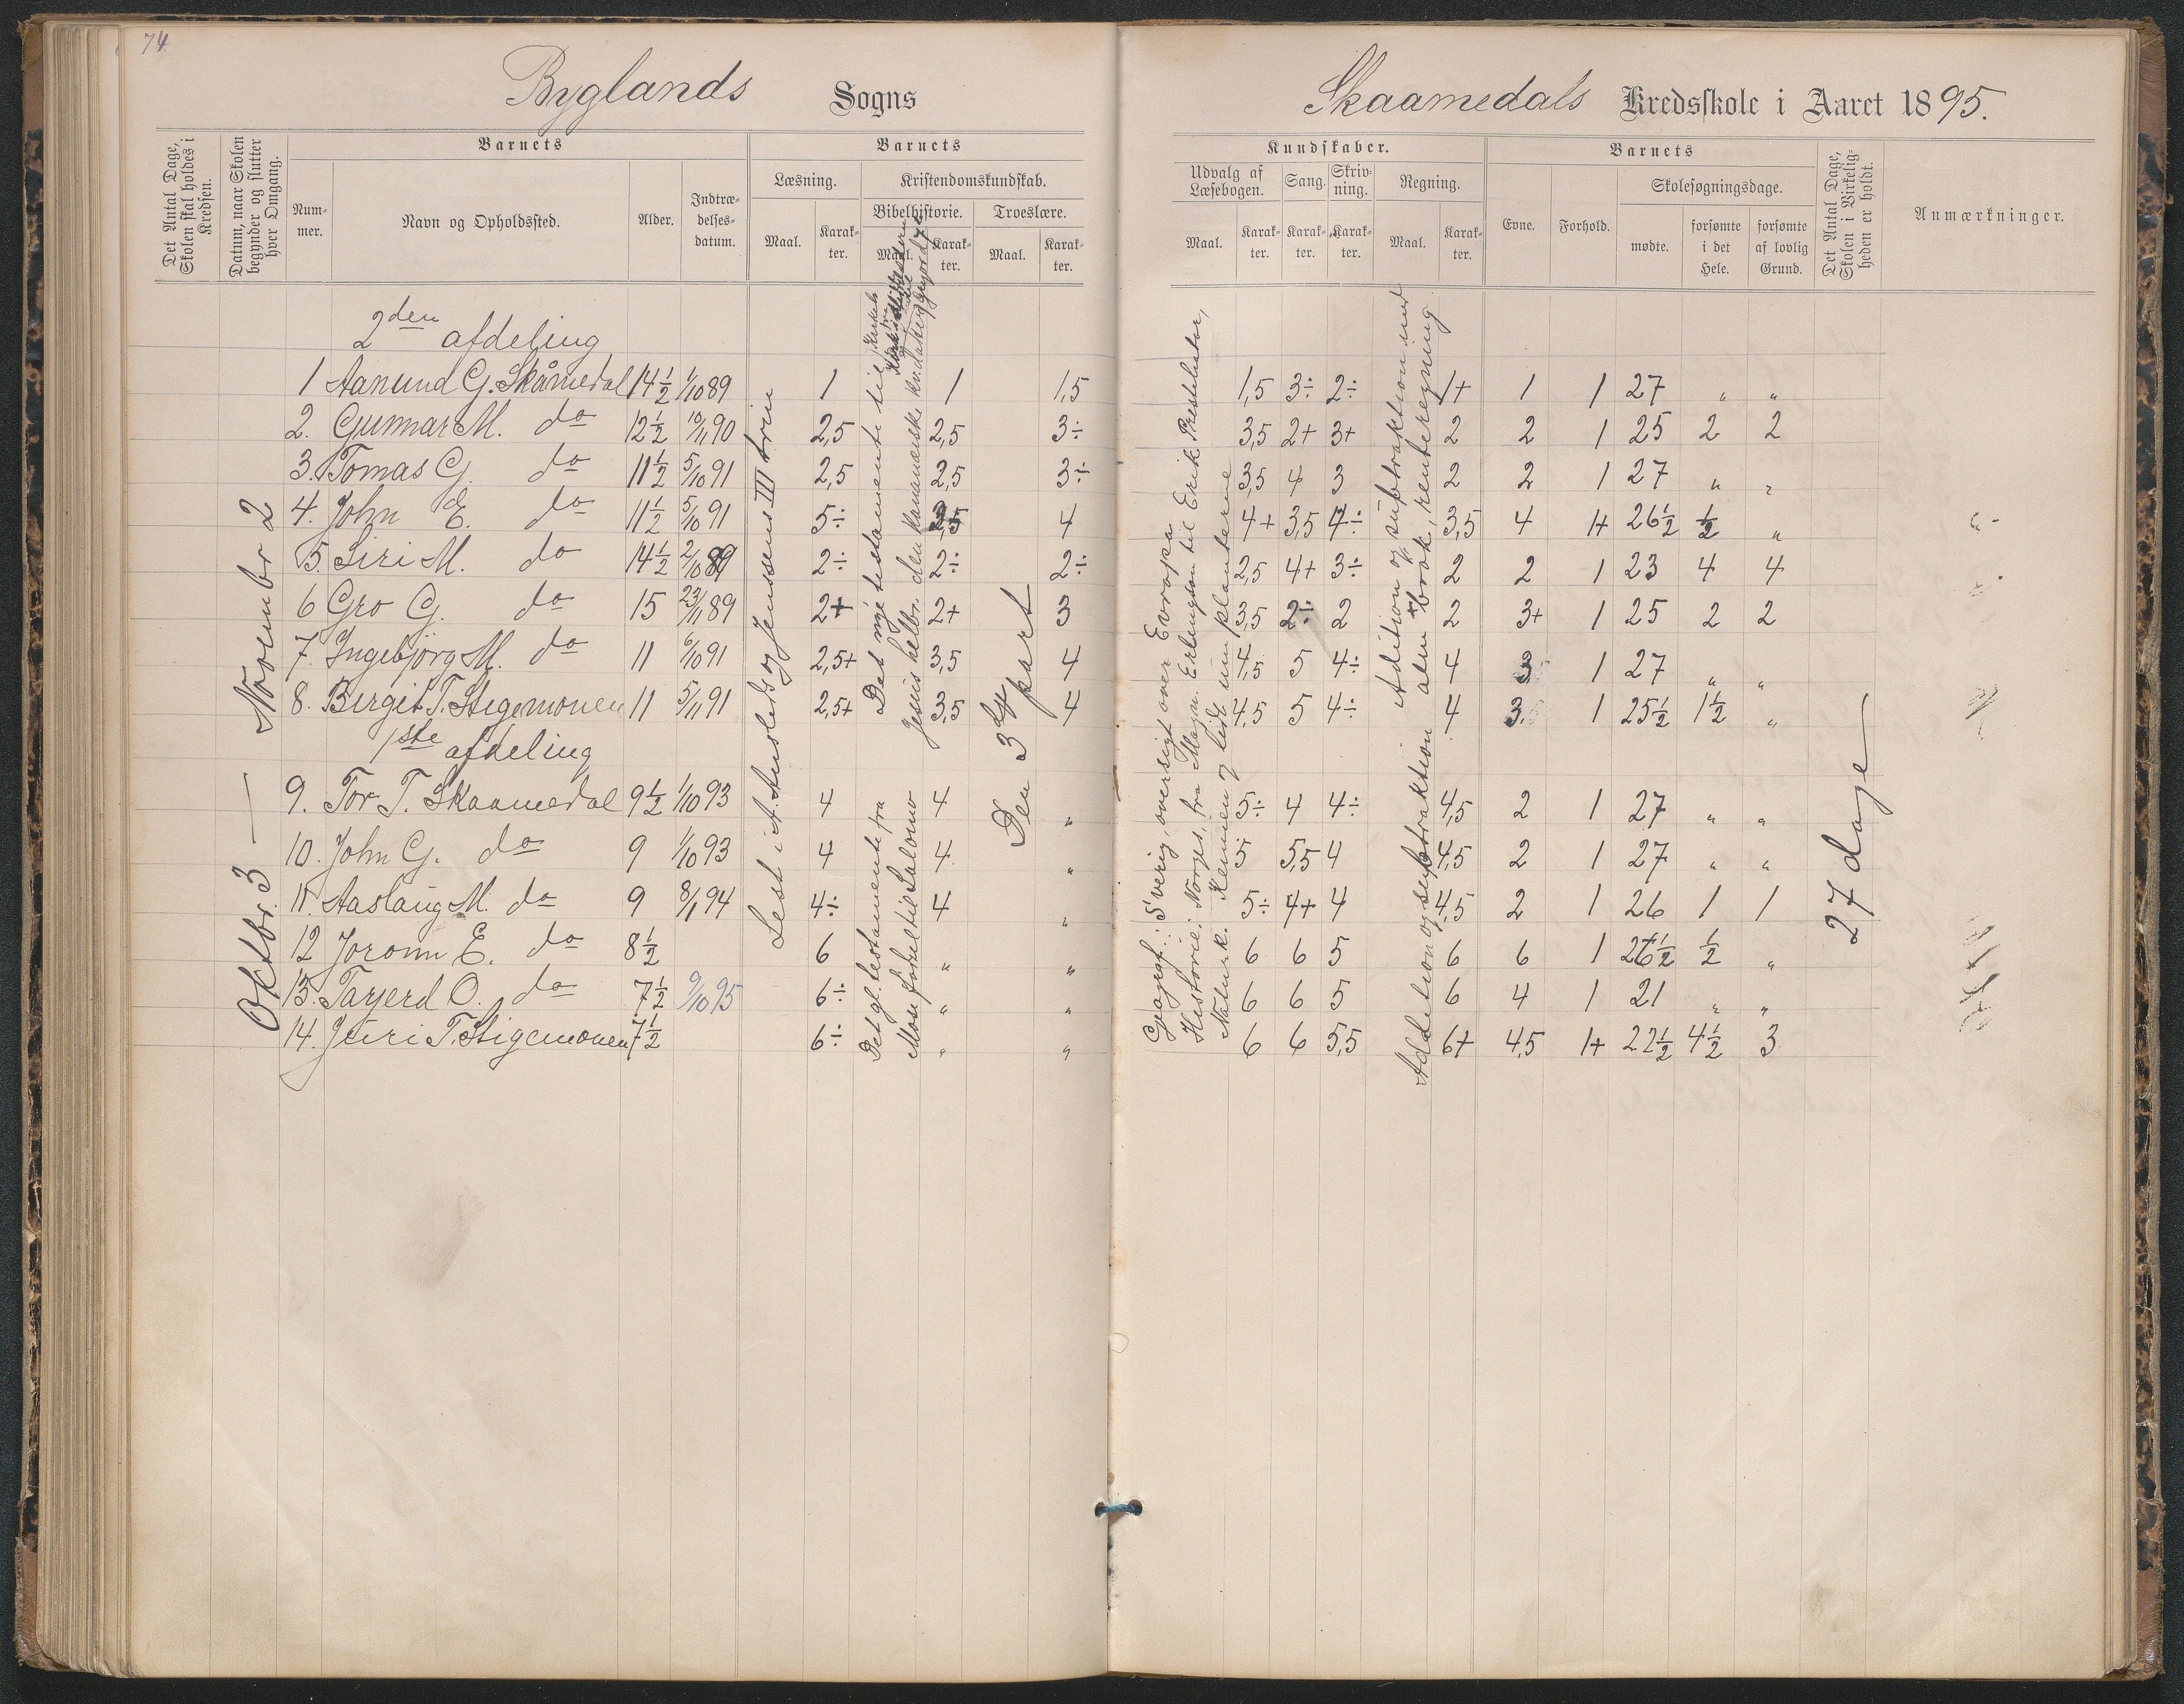 74.
Byglands Sogns
Skaamedals Kredsskole i Aaret 1895.
Det Antal Dage, Skolen skal holdes i Kredsen.
Datum, naar Skolen begynder og slutter hver Omgang.
Barnets
Nummer.
Navn og Opholdssted.
Alder.
Indtrædelsesdatum.
Barnets
Læsning.
Maal.
Karakter.
Kristendomskundskab.
Bibelhistorie.
Maal.
Karakter.
Troeslære.
Maal.
Karakter.
Kundskaber.
Udvalg af Læsebogen.
Maal.
Karakter.
Sang.
Karakter.
Skrivning.
Karakter.
Regning.
Maal.
Karakter.
Barnets
Evne.
Forhold.
Skolesøgningsdage.
mødte.
forsømte i det Hele.
forsømte af lovlig Grund.
Det Antal Dage, Skolen i Virkeligheden er holdt.
Anmærkninger.
Oktbr. 3 — Novembr 2
Lest i A. Austlid og Jenssens III trin
Det nye testamente til
Jesus helbr. den kananæiske kv. datter
Det gl. testamente fra
Mose fødsel til Salomo
Den 3die part
Geografi: Sverig, oversigt over Evropa
Historie: Norges, fra Magn. Erlingson til Erik Prestehater,
Naturk. Kemien og lidt um planterne
Adition og subtraktion med
alm brøk, renteregning
Addetion og subtraktion
27 dage
2den afdeling
1 Aanund G. Skåmedal 14 1/2 1/10 89 1 1 1,5 1,5 3÷ 2÷ 1+ 1 1 27 " "
2. Gunnar M. do 12 1/2 10/11 90 2,5 2,5 3÷ 3,5 2+ 3+ 2 2 1 25 2 2
3. Tomas G. do 11 1/2 5/10 91 2,5 2,5 3÷ 3,5 4 3 2 2 1 27 " "
4. John E. do 11 1/2 5/10 91 5÷ 4 4+ 3,5 4÷ 3,5 4 1+ 26 1/2 1/2 "
5. Siri M. do 14 1/2 2/10 89 2÷ 2÷ 2÷ 2,5 4+ 3÷ 2 2 1 23 4 4
6 Gro G. do 15 23/11 89 2+ 2+ 3 3,5 2÷ 2 2 3+ 1 25 2 2
7. Ingebjörg M. do 11 6/10 91 2,5+ 3,5 4 4,5 5 4÷ 4 3 1 27 " "
8. Birgit T. Stigemonen 11 5/11 91 2,5+ 3,5 4 4,5 5 4÷ 4 3,5 1 25 1/2 1 1/2 "
1ste afdeling
9. Tor T. Skaamedal 9 1/2 1/10 93 4 4 " 5÷ 4 4÷ 4,5 2 1 27 " "
10. John G. do 9 1/10 93 4 4 " 5 5,5 4 4,5 2 1 27 " "
11. Aaslaug M. do 9 8/1 94 4÷ 4 " 5÷ 4+ 4 4,5 2 1 26 1 1
12 Joronn E. do 8 1/2 6 " " 6 6 5 6 6 1 26 1/2 1/2 "
13. Tarjerd O. do 7 1/2 9/10 95 6÷ " " 6 6 5 6 4 1 21 " "
14. Juri T. Stigemonen 7 1/2 6÷ " " 6 6 5,5 6+ 4,5 1+ 22 1/2 4 1/2 3